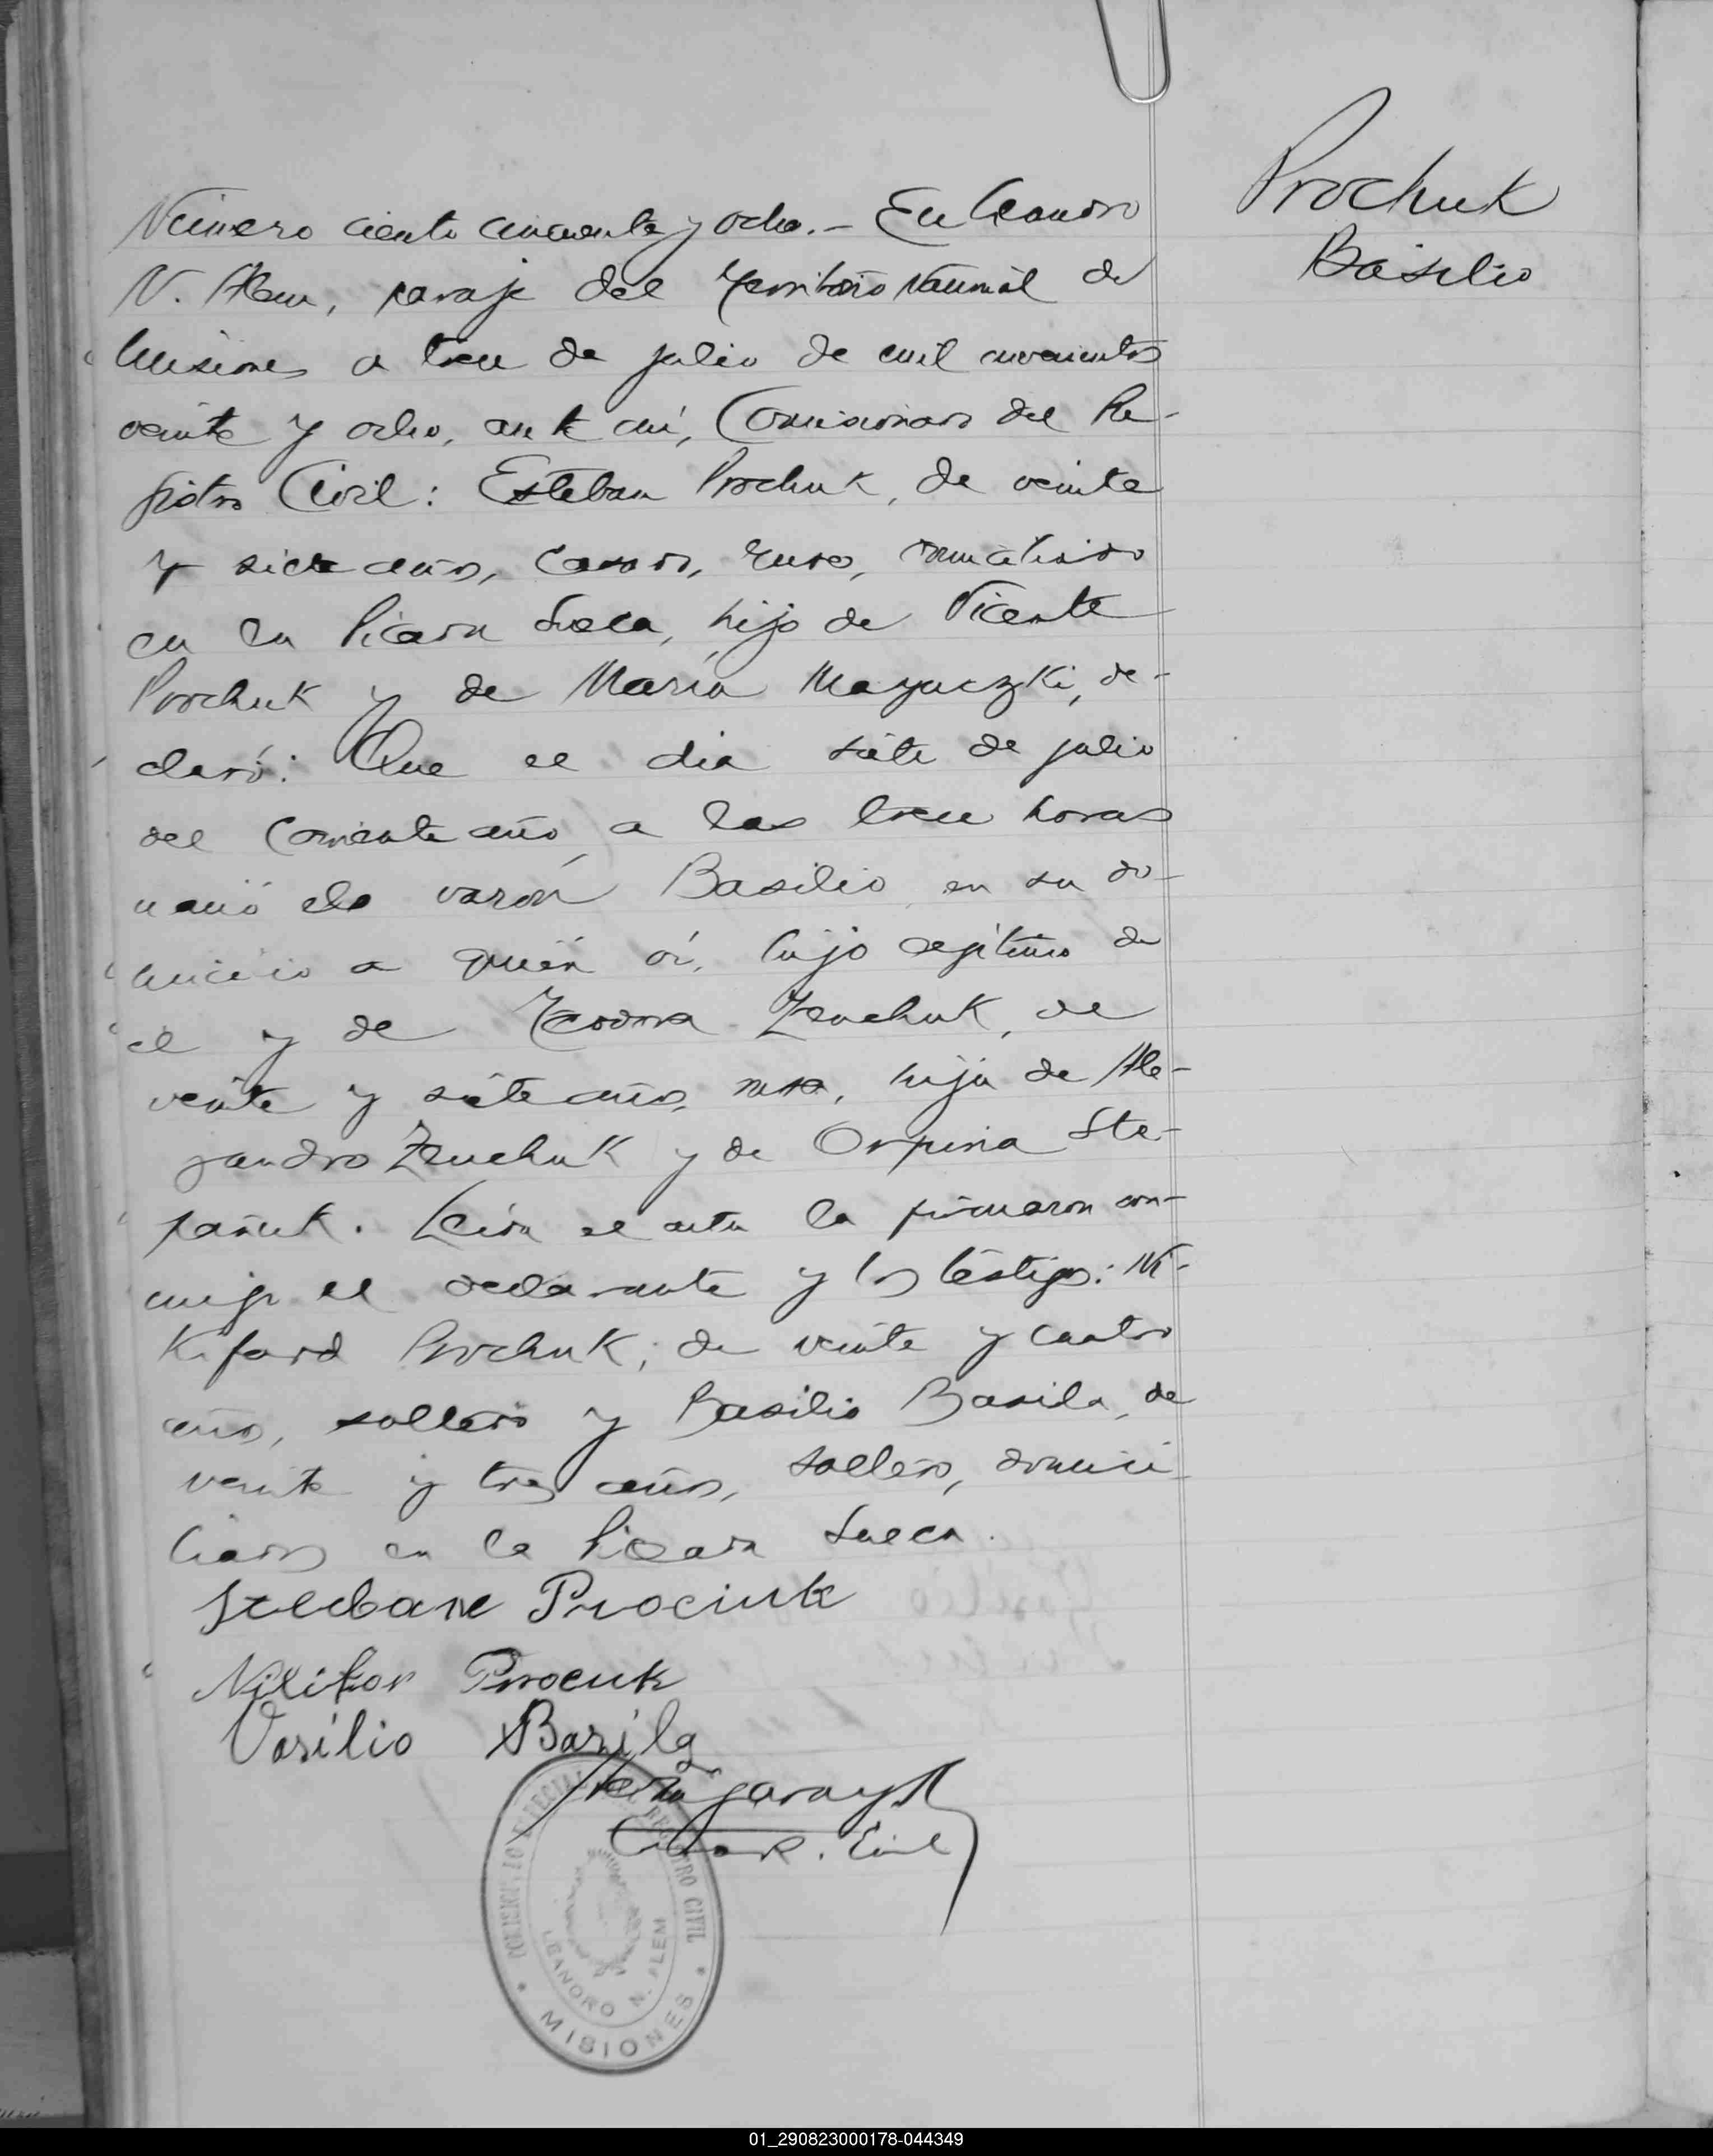 Prochuk
Basilio
Número ciento cincuenta y ocho.- En Leandro
N. Alem, paraje del Territorio Nacional de
Misiones a trece de julio de mil novecientos
veinte y ocho, ante mí, Comisionado del Re-
gistro Civil: Esteban Prochuk, de veinte
y siete años, casado, ruso, domiciliado
en la Picada Sueca, hijo de Vicente
Prochuk y de María Mazuczki, de-
claró: Que el dia siete de julio
del corriente año a las trece horas
nació el varón Basilio en su do-
micilio a quien ví, hijo legítimo de
el y de Teodora Zenchuk, de
veinte y siete años, rusa, hija de Ale-
jandro Zenchuk y de Orpina Ste-
pañuk. Leida el acta la firmaron con-
migo el declarante y los testigos: Ni-
kiford Prochuk, de veinte y cuatro
años, soltero y Basilio Basila, de
veinte y tres años, soltero, domici-
liados en la Picada Sueca.
Stecbane Prociuk
Nikifor Procuk
Vasilio Barila
Civil
REGISTRO CIVIL
LEANDRO N. ALEM
MISIONES
01_290823000178-044349